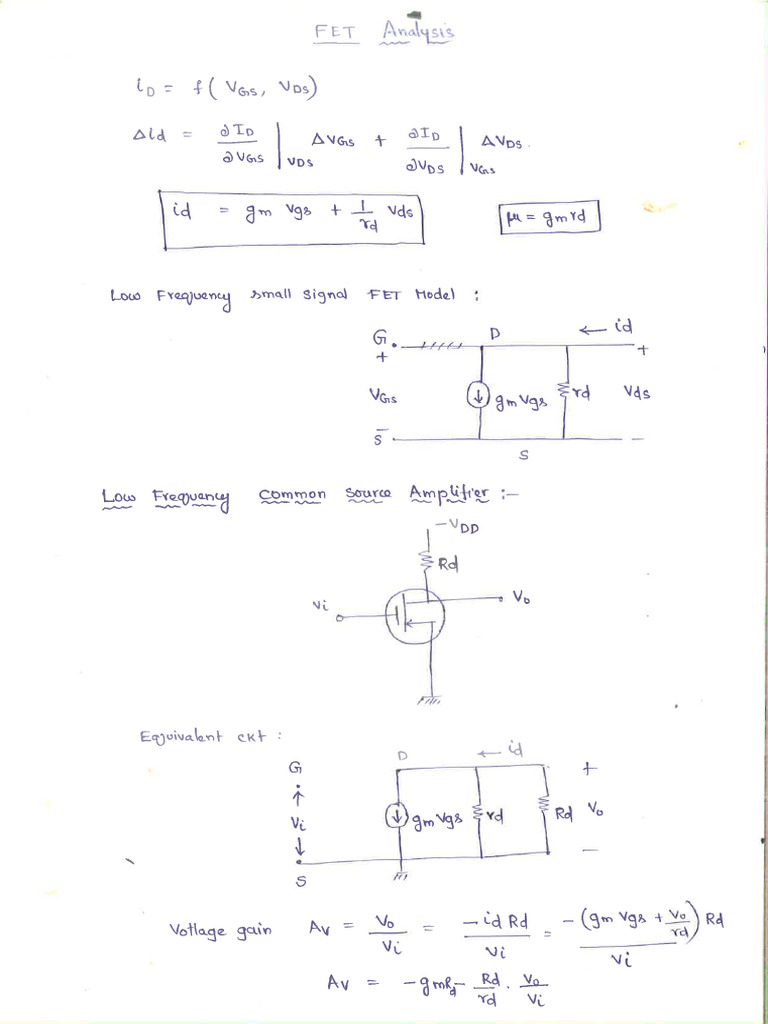 FET Analysis
iD = f( VGS, VDS)
Δld = ∂ID/∂VGS |VDS ΔVGS + ∂ID/∂VDS |VGS ΔVDS.
id = gm vgs + 1/rd Vds
μ = gmrd
Low Frequency small signal FET Model :
G D ← id
+ +
VGS gmVgs rd Vds
S̅ S −
Low Frequency Common Source Amplifier :-
-VDD
Rd
Vi Vo
Equivalent ckt :
G D ← id +
↑ Vi ↓ gmVgs rd Rd Vo
S −
Votlage gain Av = Vo/Vi = -id Rd/Vi = -(gm Vgs + Vo/rd) Rd/Vi
Av = -gmRd - Rd/rd . Vo/Vi